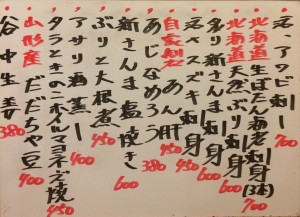 活〆アワビ刺し 700
北海道生ぼたん海老刺身(3本) 700
北海道天然ぶり刺身 600
多り新さんま刺身 600
活〆スズキ刺身 450
自家製あん肝 450
あじなめろう 380
新さんま塩焼き 600
ぶりと大根煮 450
アサリ酒蒸し 400
タラときのこホイルマヨネーズ焼 450
山形産だだちゃ豆 400
谷中生姜 380